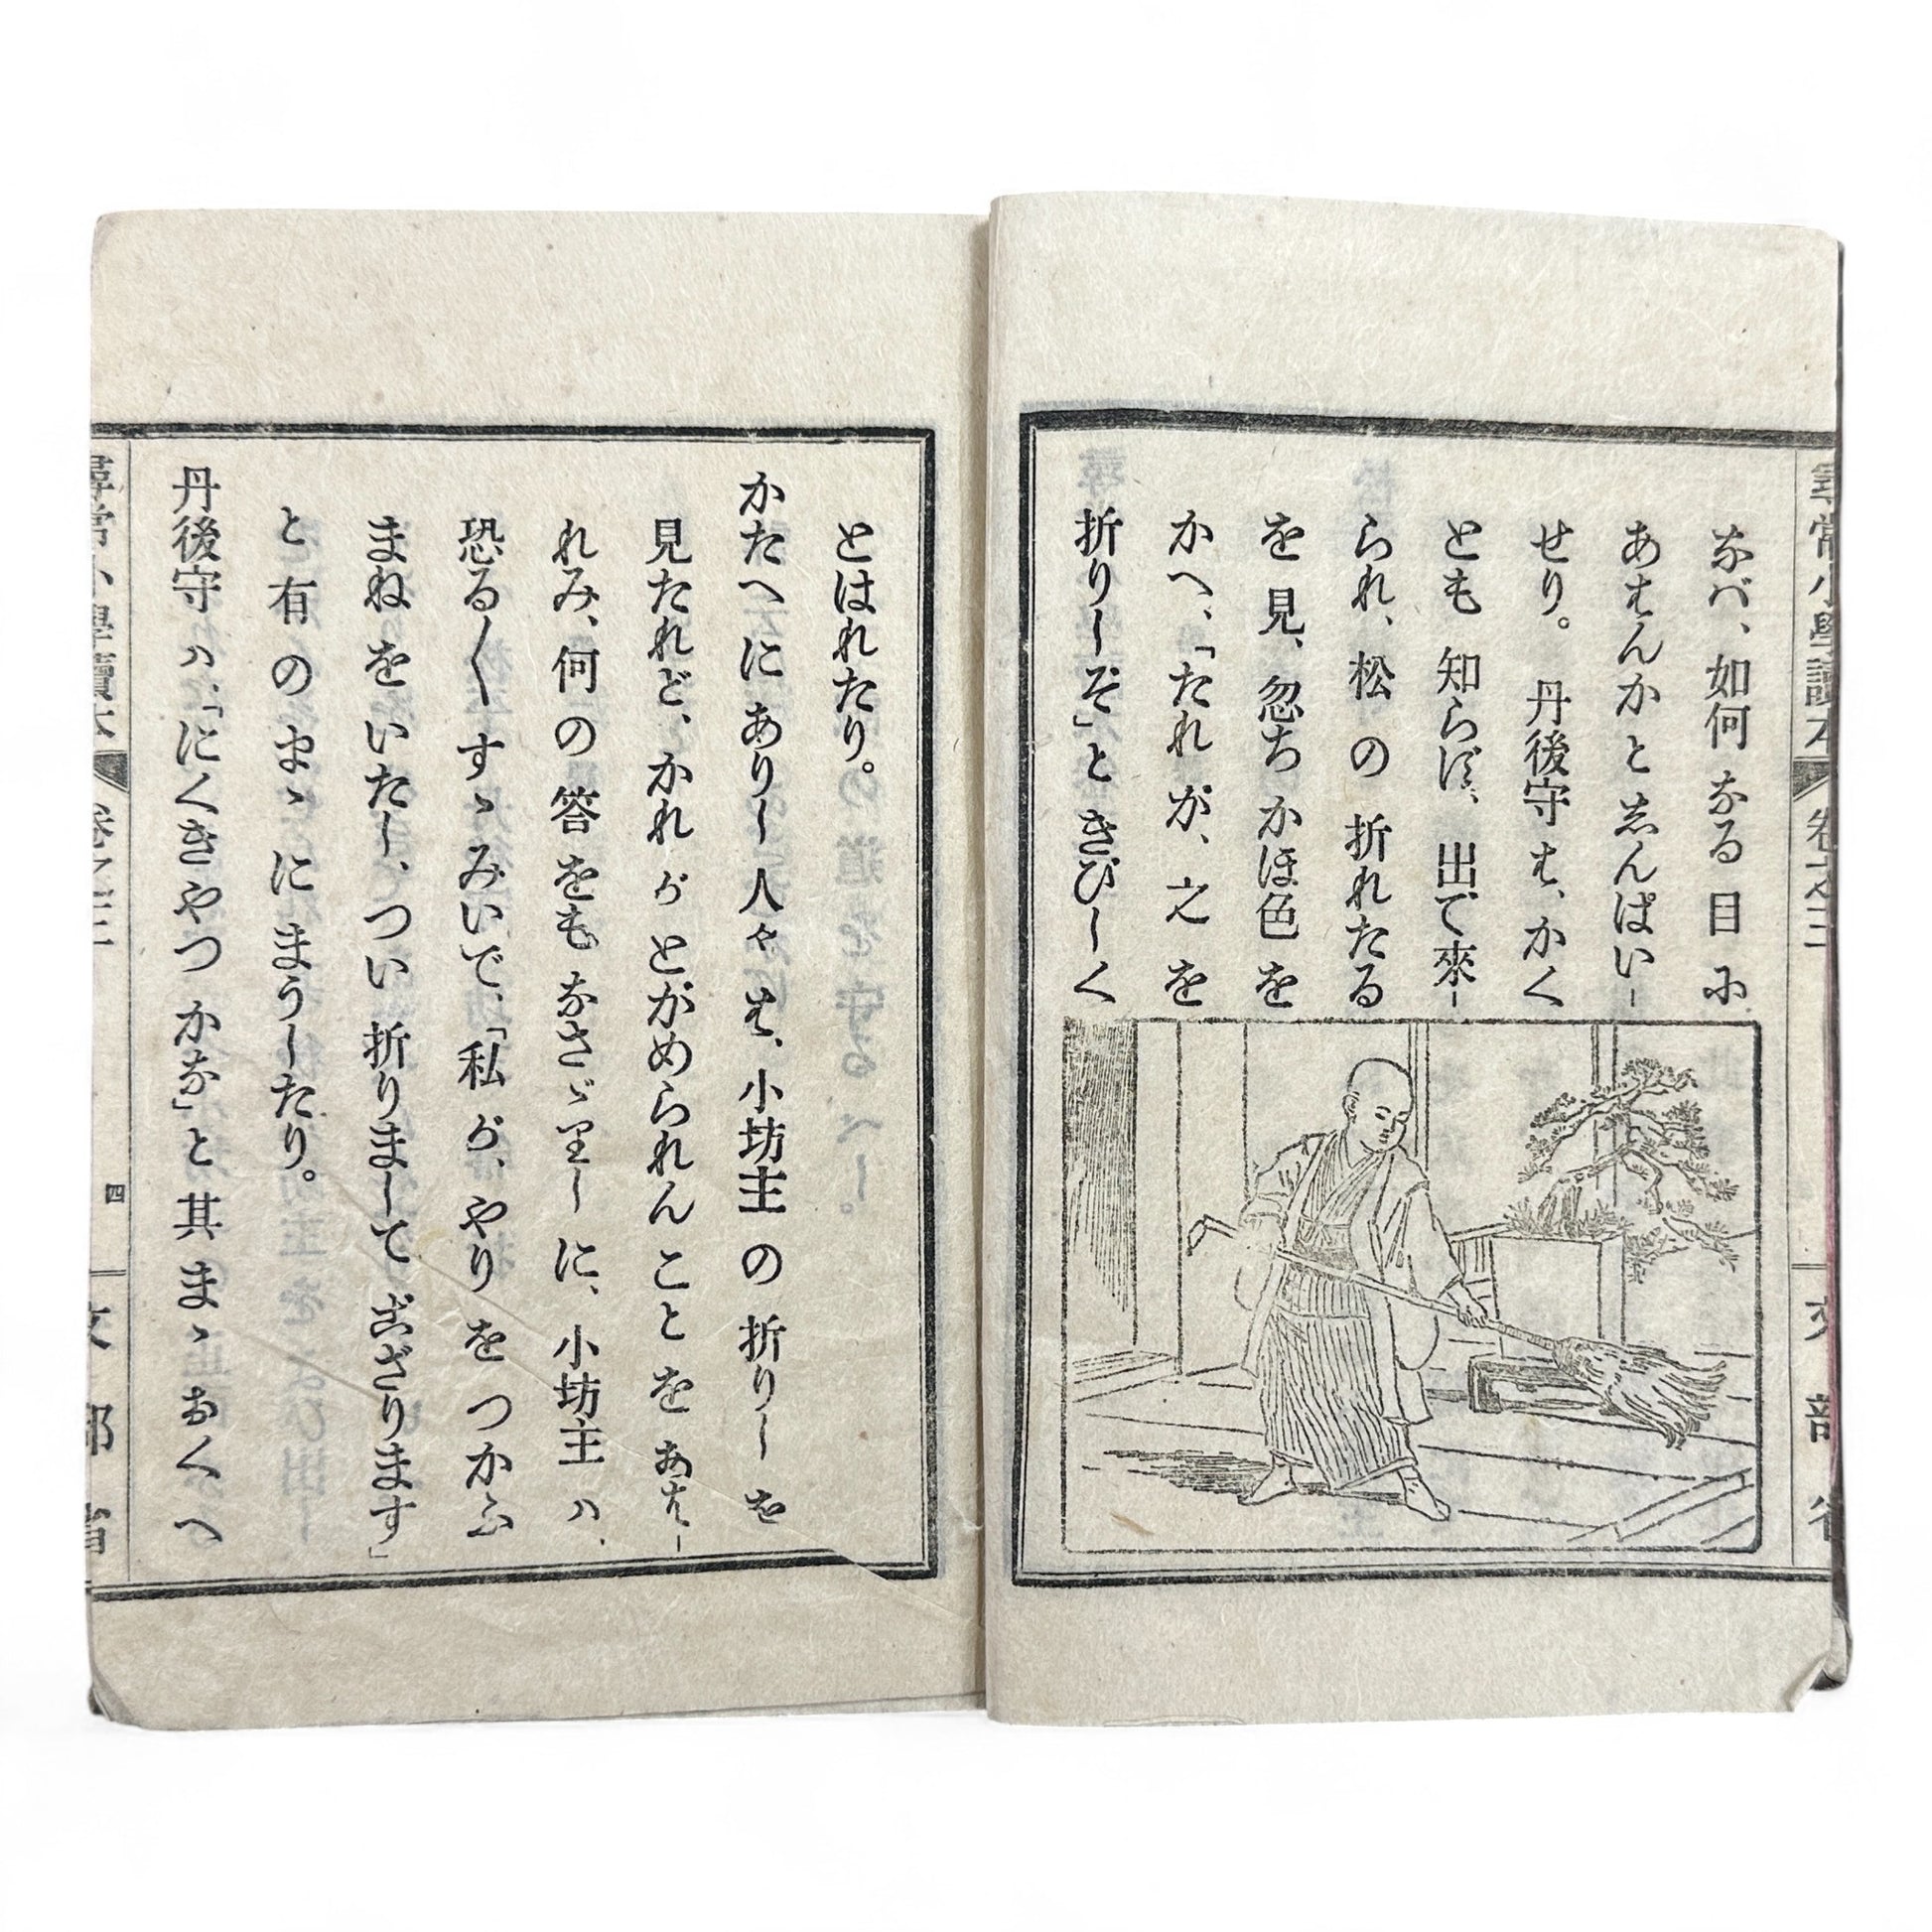 尋常小學讀本 卷之三 文部省
なバ、如何なる目に
あはんかとしんぱい-
せり。丹後守は、かく
とも知らず、出で來-
られ、松の折れたる
を見、忽ちかほ色を
かへ、「たれが、之を
折りしぞ」ときびしく
とはれたり。
かたへにありし人々は、小坊主の折りしを
見たれど、かれがとがめられんことをあは-
れみ、何の答をもなさゞりしに、小坊主ハ、
恐る〱すゝみいで、「私が、やりをつかふ
まねをいたし、つい折りましてござります」
と有のまゝにまうしたり。
丹後守ハ、「にくきやつかな」と其まゝおくへ
尋常小學讀本 卷之三 四 文部省